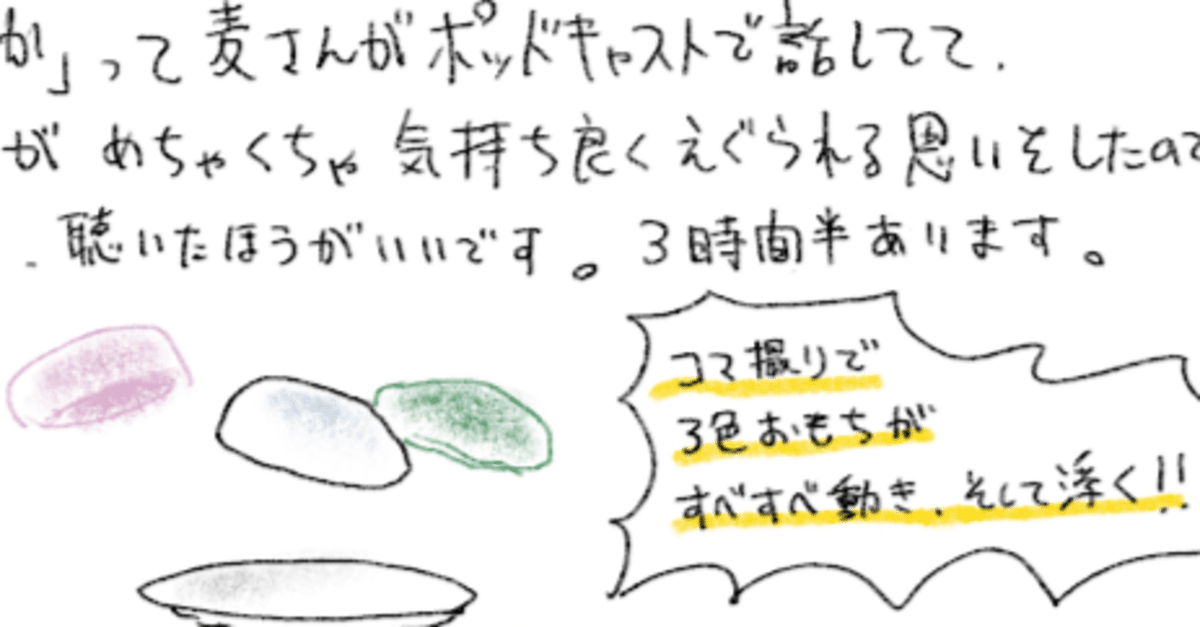 か」って麦さんがポッドキャストで話してて.
が めちゃくちゃ 気持ち良く えぐられる思いをしたので
. 聴いたほうがいいです。3時間半あります。
コマ撮りで
3色おもちが
すべすべ動き、そして浮く!!